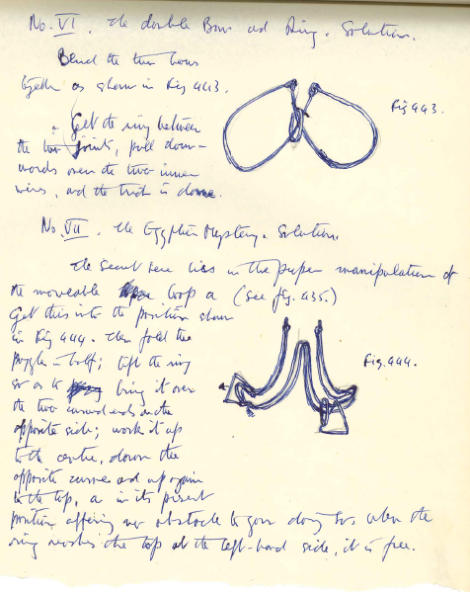 No. VI. The double Bow and Ring. Solution.
Bend the two bows
together as shown in Fig 443.
Fig 443.
Get the ring between
the two joints, pull down-
wards over the two inner
wires, and the trick is done.
No. VII. The Egyptian Mystery. Solution.
The secret here lies in the proper manipulation of
the moveable loop a (see fig. 435.)
Get this into the position shown
in Fig 444. Then fold the
Fig. 444.
puzzle in half; lift the ring
so as to bring it over
the two curved ends on the
opposite side; work it up
to the centre, down the
opposite curve and up again
to the top, a in its present
position offering no obstacle to your doing so. When the
ring reaches the top at the left-hand side, it is free.